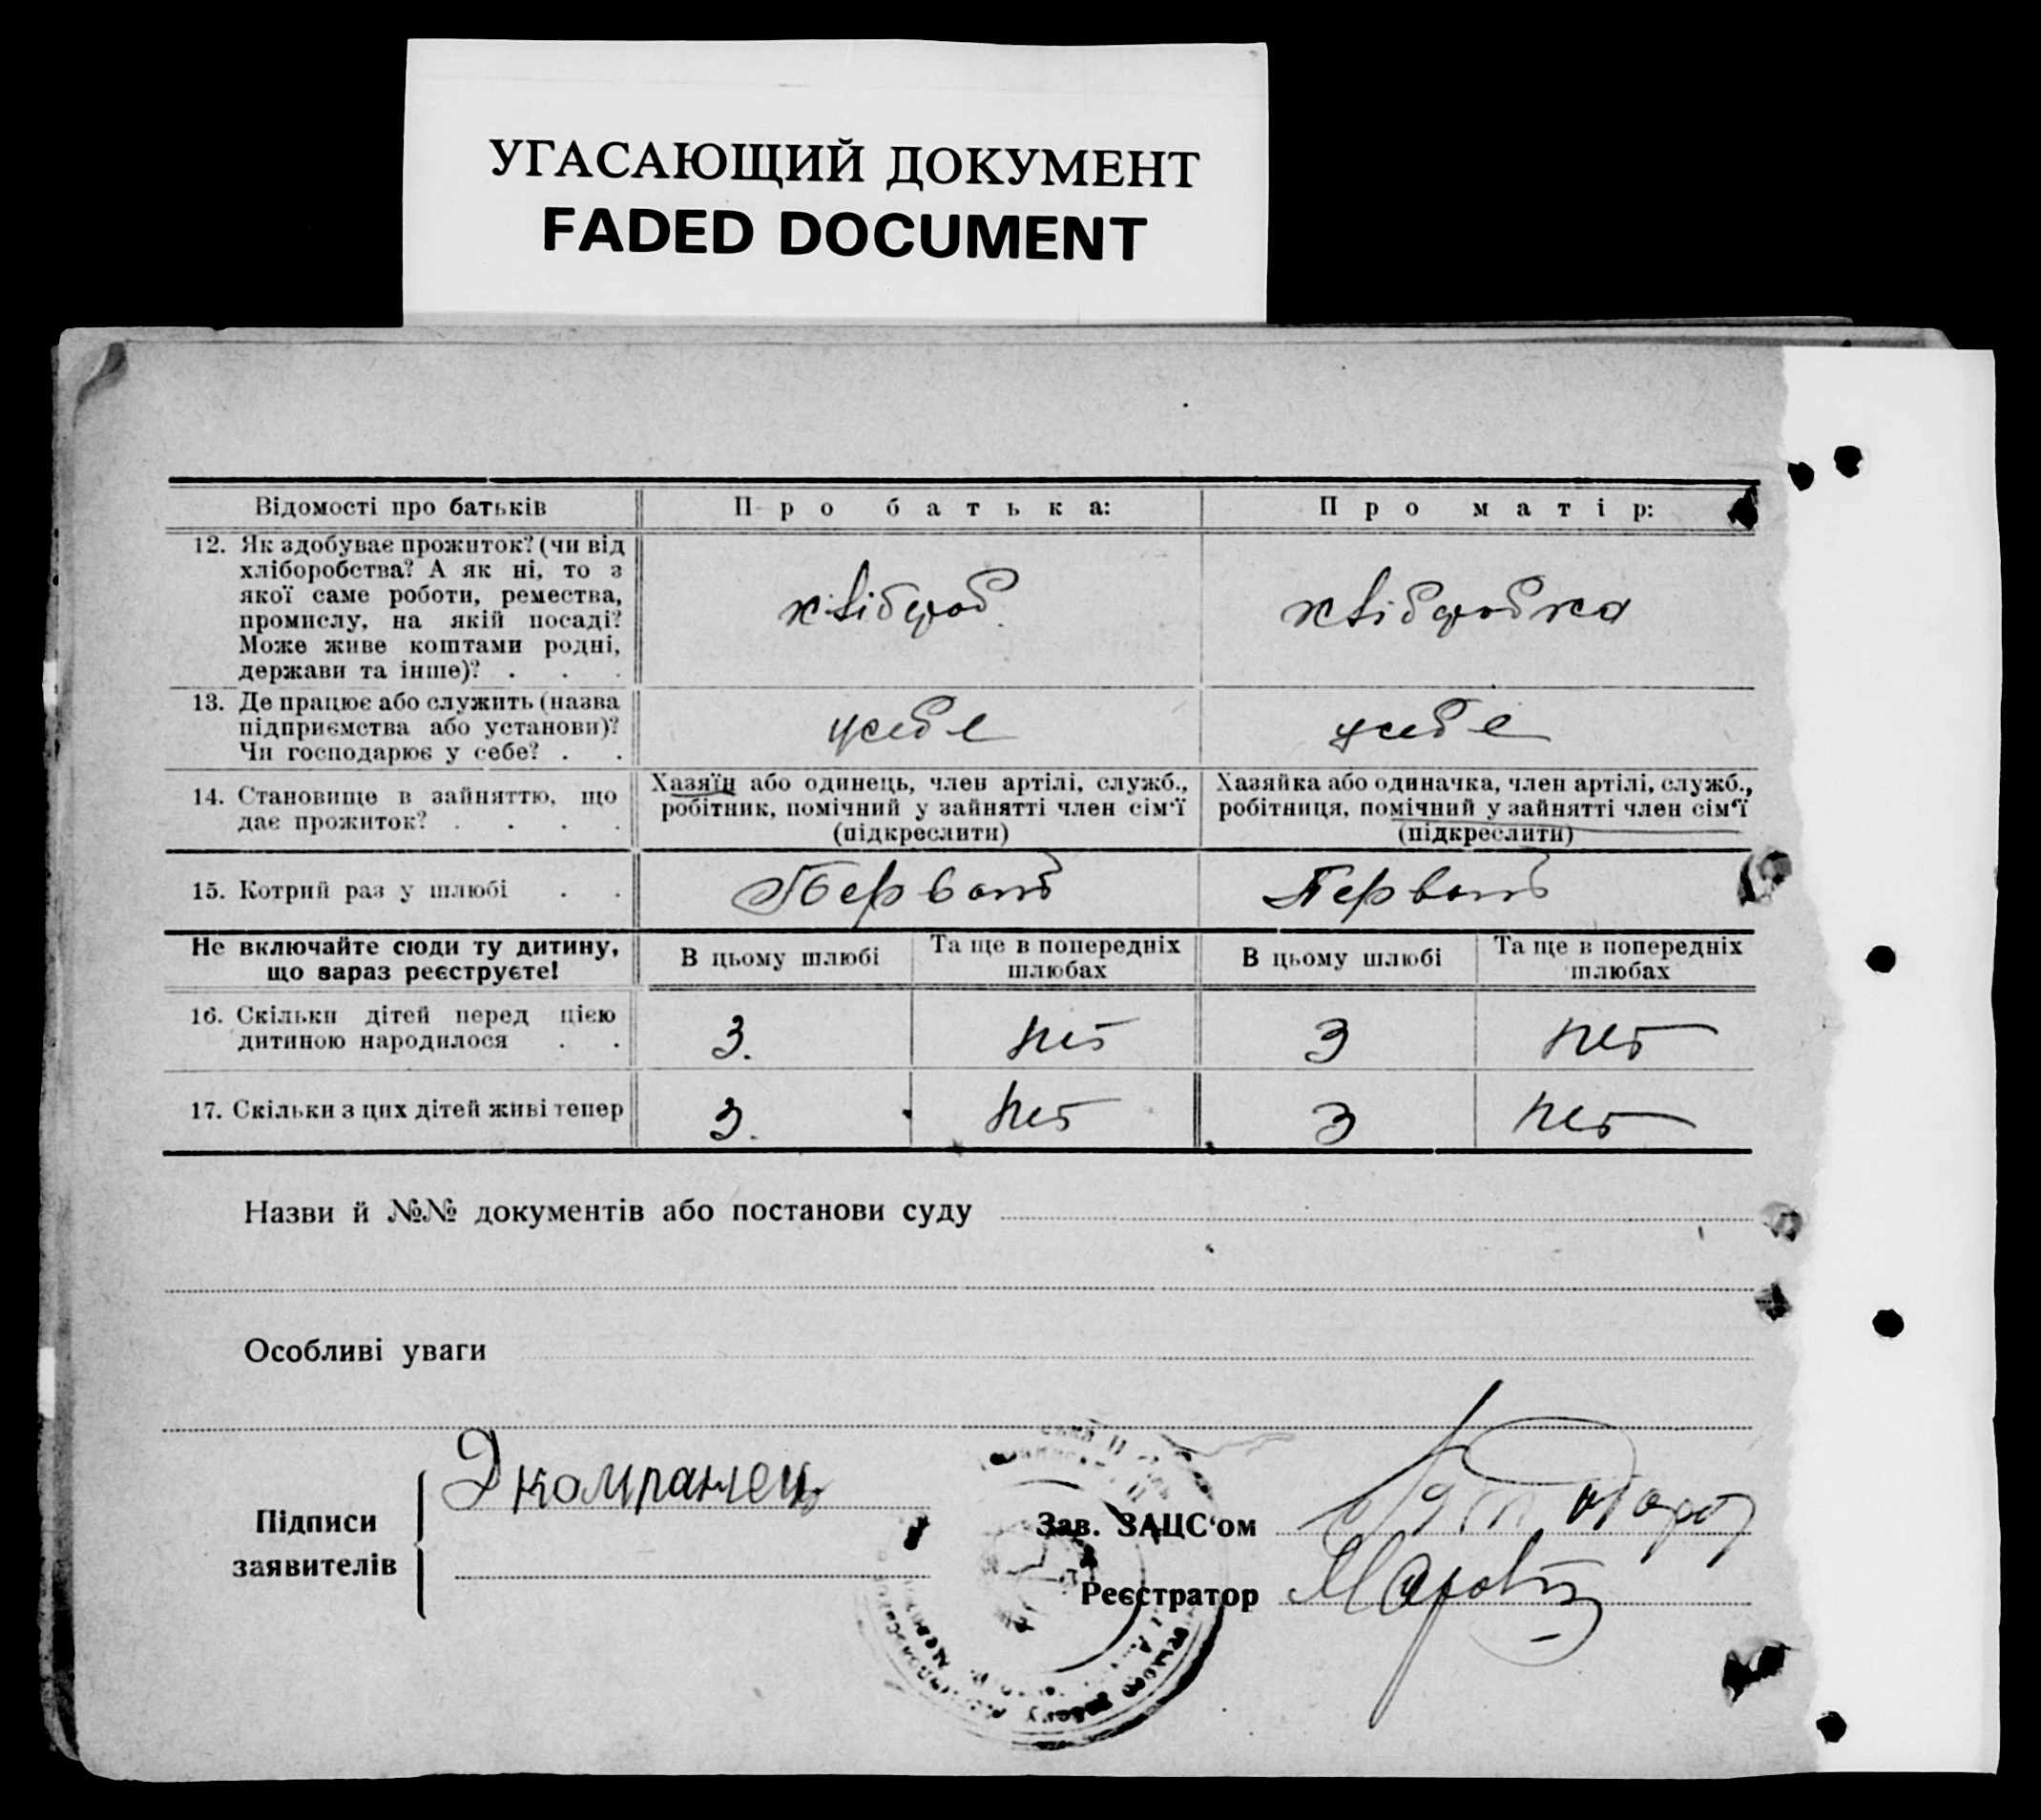 УГАСАЮЩИЙ ДОКУМЕНТ
FADED DOCUMENT
Відомості про батьків
Про батька:
Про матір:
12. Як здобуває прожиток? (чи від
хліборобства? А як ні, то з
якої саме роботи, ремества,
промислу, на якій посаді?
Може живе коштами родні,
держави та інше)? . . .
хлібороб
хліборобка
13. Де працює або служить (назва
підприємства або установи)?
Чи господарює у себе? . .
усебе
усебе
14. Становище в зайняттю, що
дає прожиток? . . . .
Хазяїн або одинець, член артілі, служб.,
робітник, помічний у зайнятті член сім'ї
(підкреслити)
Хазяйка або одиначка, член артілі, служб.,
робітниця, помічний у зайнятті член сім'ї
(підкреслити)
15. Котрий раз у шлюбі . .
Первой
Первой
Не включайте сюди ту дитину,
що зараз реєструєте!
В цьому шлюбі
Та ще в попередніх
шлюбах
В цьому шлюбі
Та ще в попередніх
шлюбах
16. Скільки дітей перед цією
дитиною народилося . .
3.
нет
3
нет
17. Скільки з цих дітей живі тепер
3.
нет
3
нет
Назви й №№ документів або постанови суду
Особливі уваги
Підписи
заявителів
Зав. ЗАЦС'ом
Реєстратор